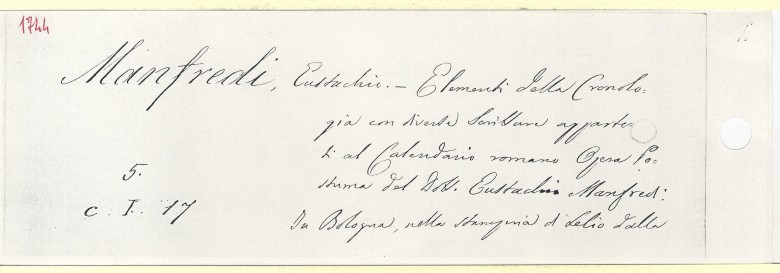 1744
Manfredi, Eustachio. — Elementi della Cronolo=
gia con diverse Scritture apparte
ti al Calendario romano Opera Po=
5. stuma del Dott. Eustachio Manfredi.
c. I. 17 In Bologna, nella stamperia di Lelio dalla